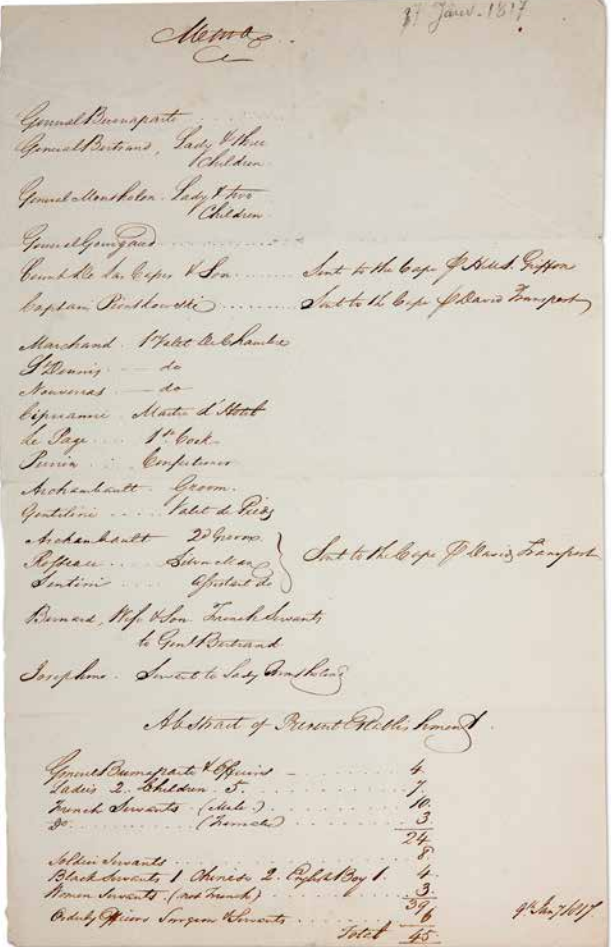 17 Janv. 1817
Memo
General Buonaparte
General Bertrand, Lady & three
Children
General Montholon. Lady & two
Children
General Gourgaud
Count de Las Cases & Son Sent to the Cape P H.M.S. Griffon
Captain Piontkowski Sent to the Cape P David Transport
Marchand 1st Valet de Chambre
St Dennis — do
Nouveras — do
Cipreanni Maitre d'Hotel
Le Page 1st Cook
Pieron Confectioner
Archambault Groom
Gentilini Valet de Pieds
Archambault 2d Groom
Rosseau Silverman Sent to the Cape P David Transport
Santini Assistant do
Bernard, Wife & Son French Servants
to Genl Bertrand
Josephine Servant to Lady Montholon
Abstract of Present Establishment
General Buonaparte & Officers 4
Ladies 2. Children 5. 7.
French Servants (Male.) 10.
Do (Female) 3
24
Soldier Servants 8
Black Servants 1 Chinese 2. English Boy 1. 4
Women Servants. (not French) 3
39
Orderly Officers Surgeon & Servants 6
Total 45
9th Jany 1817